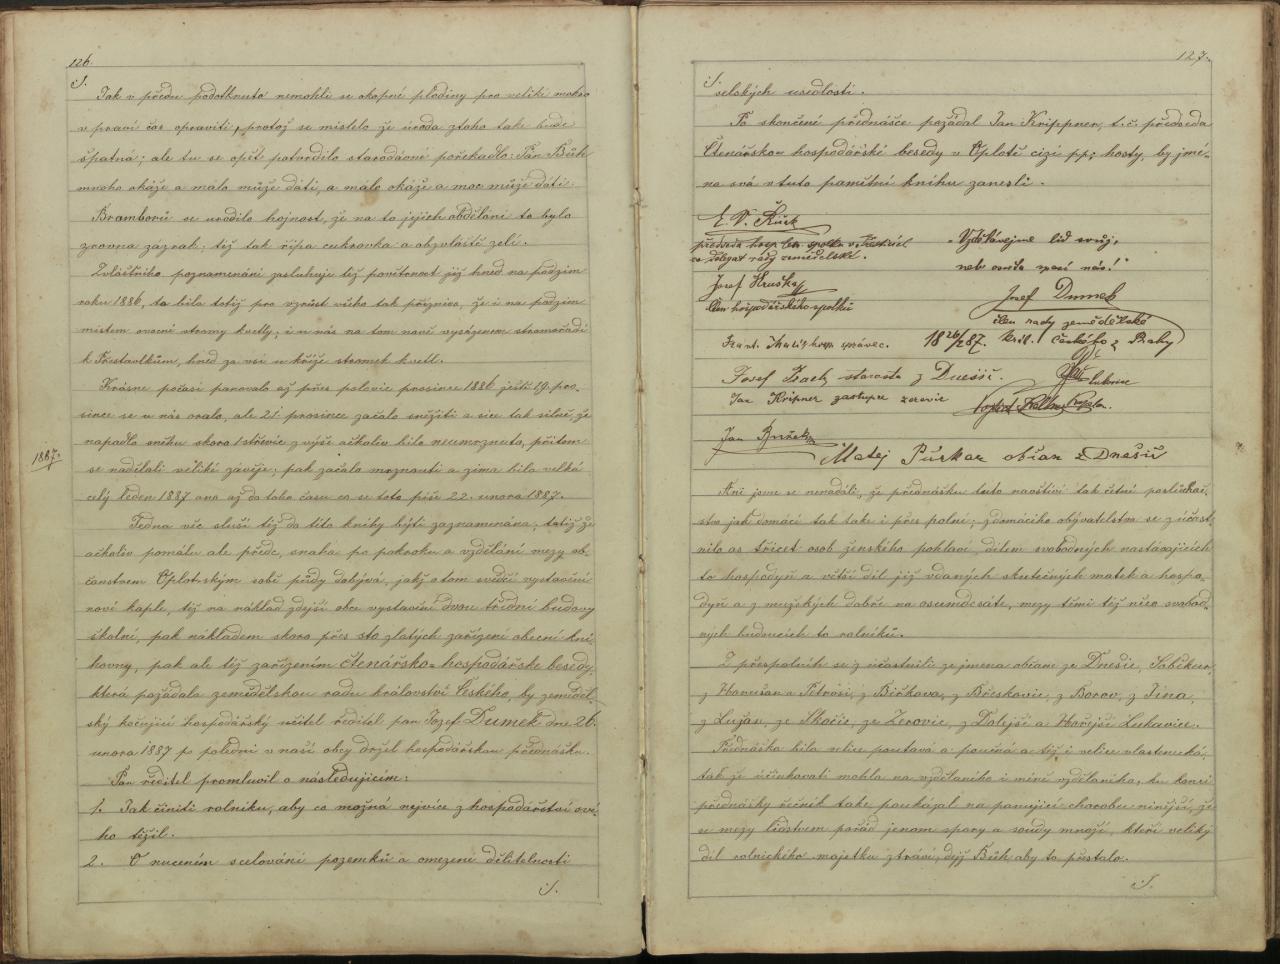 126.
Jak v předu podotknuto nemohli se okopné plodiny pro veliké mokro
v pravi čas opraviti, protož se mislelo že úroda ztoho take bude
špatná; ale tu se opět potvrdilo starodávné pořekadlo: Pán Bůh
mnoho okáže a málo může dáti, a málo okáže a moc může dáti:
Bramborů se urodilo hojnost, že na to jejich obdělání to bylo
zrovna zázrak; též tak řípa cukrovka a obzvláště zelí.
Zvláštního poznamenání zasluhuje též povětrnost již hned na podzim
roku 1886, ta bila totiž pro vzrůst všeho tak přízniva, že i na podzim
místem ovocné stromy kvetly; i u nás na tom nově vysázenem stromořadí
k Přestavlkům, hned za vsí u kříže stromek kvetl.
Krásne počasí panovalo až přes polovic prosince 1886 ještě 19. pro-
since se u nás oralo, ale 21. prosince začalo sněžiti a sice tak silně, že
napadlo sněhu skoro 1 střevíc zvýší ačkoliv bilo neumrznuto, přitom
1887.
se nadělali veliké závěje; pak začalo mrznouti a zima bila velká
celý leden 1887 ano až do toho času co se toto píše 22. unora 1887.
Jedna věc sluší též do této knihy býti zaznamenána; totiž že
ačkoliv pomálu ale předc, snaha po pokroku a vzdělání mezy ob-
čanstvem Oplotským sobě půdy dobývá, jakž o tom svědčí vystavění
nové kaple, též na náklad zdejší obce vystavění dvou třídní budovy
školní, pak nákladem skoro přes sto zlatých zařízení obecní kni-
hovny, pak ale též zařízením čtenářsko-hospodářske besedy,
která požádala zemědělskou radu království Českého, by zeměděl-
ský kočující hospodářský učitel ředitel pan Jozef Dumek dne 26.
unora 1887 po poledni v naší obcy držel hospodářskou přednášku.
Pan ředitel promluvil o následujícím:
1. Jak činiti rolníku, aby co možná nejvíce z hospodářství své-
ho těžil.
2. O nuceném scelování pozemků a omezení dělitelnosti
127.
selských usedlostí.
Po skončené přednášce požádal Jan Krippner, t. č. předseda
Čtenářsko hospodářské besedy v Oplotě cizí pp: hosty, by jmé-
na svá v tuto pamětní knihu zanesli.
E. V. Růžek
předseda hosp. spolku v
co delegat rády zemědělské.
Josef Hruška
člen hospodářského spolku
„Vzdělávejme lid svůj,
nebo osvěta spasí nás!"
Josef Dumek
člen rady zemědělské
král. českého z Prahy
18 26/2 87.
správec.
Josef Zach starosta z Dnešic.
Jan Kripner zástupce
Jan Růžek
Matej Púrkar občan z Dnešic
Ani jsme se nenadáli, že přednášku tuto navštíví tak četné posluchač-
stvo jak domácí tak take i přes polní; z domácího obývatelstva se z účast-
nilo as třicet osob ženského pohlaví, dílem svobodných nastávajících
to hospodyň a větší díl již vdaných skutečných matek a hospo-
dyň a z mužských dobře na osumdesáte, mezy těmi též něco svobod-
ných budoucích to rolníků.
Z přespolních se z učastnili ze jmena občane ze Dnešic, Soběkur,
z Horušan a Petrosi, z Biřkova, z Březkovic, z Borov, z Jína,
z Lužan, ze Skočic, ze Zerovic, z Dolejší a Hořejší Lukavice.
Přednáška bila velice poutavá a poučná a též i velice vlastenecká,
tak že účinkovati mohla na vzdělaného i méně vzdělaného, ku konci
přednášky řečník take poukázal na panující chorobu nínější, že
se mezy lidstvem pořád jenom spory a soudy množí, kteří veliký
díl rolnického majetku ztráví, dejž Bůh aby to přestalo.